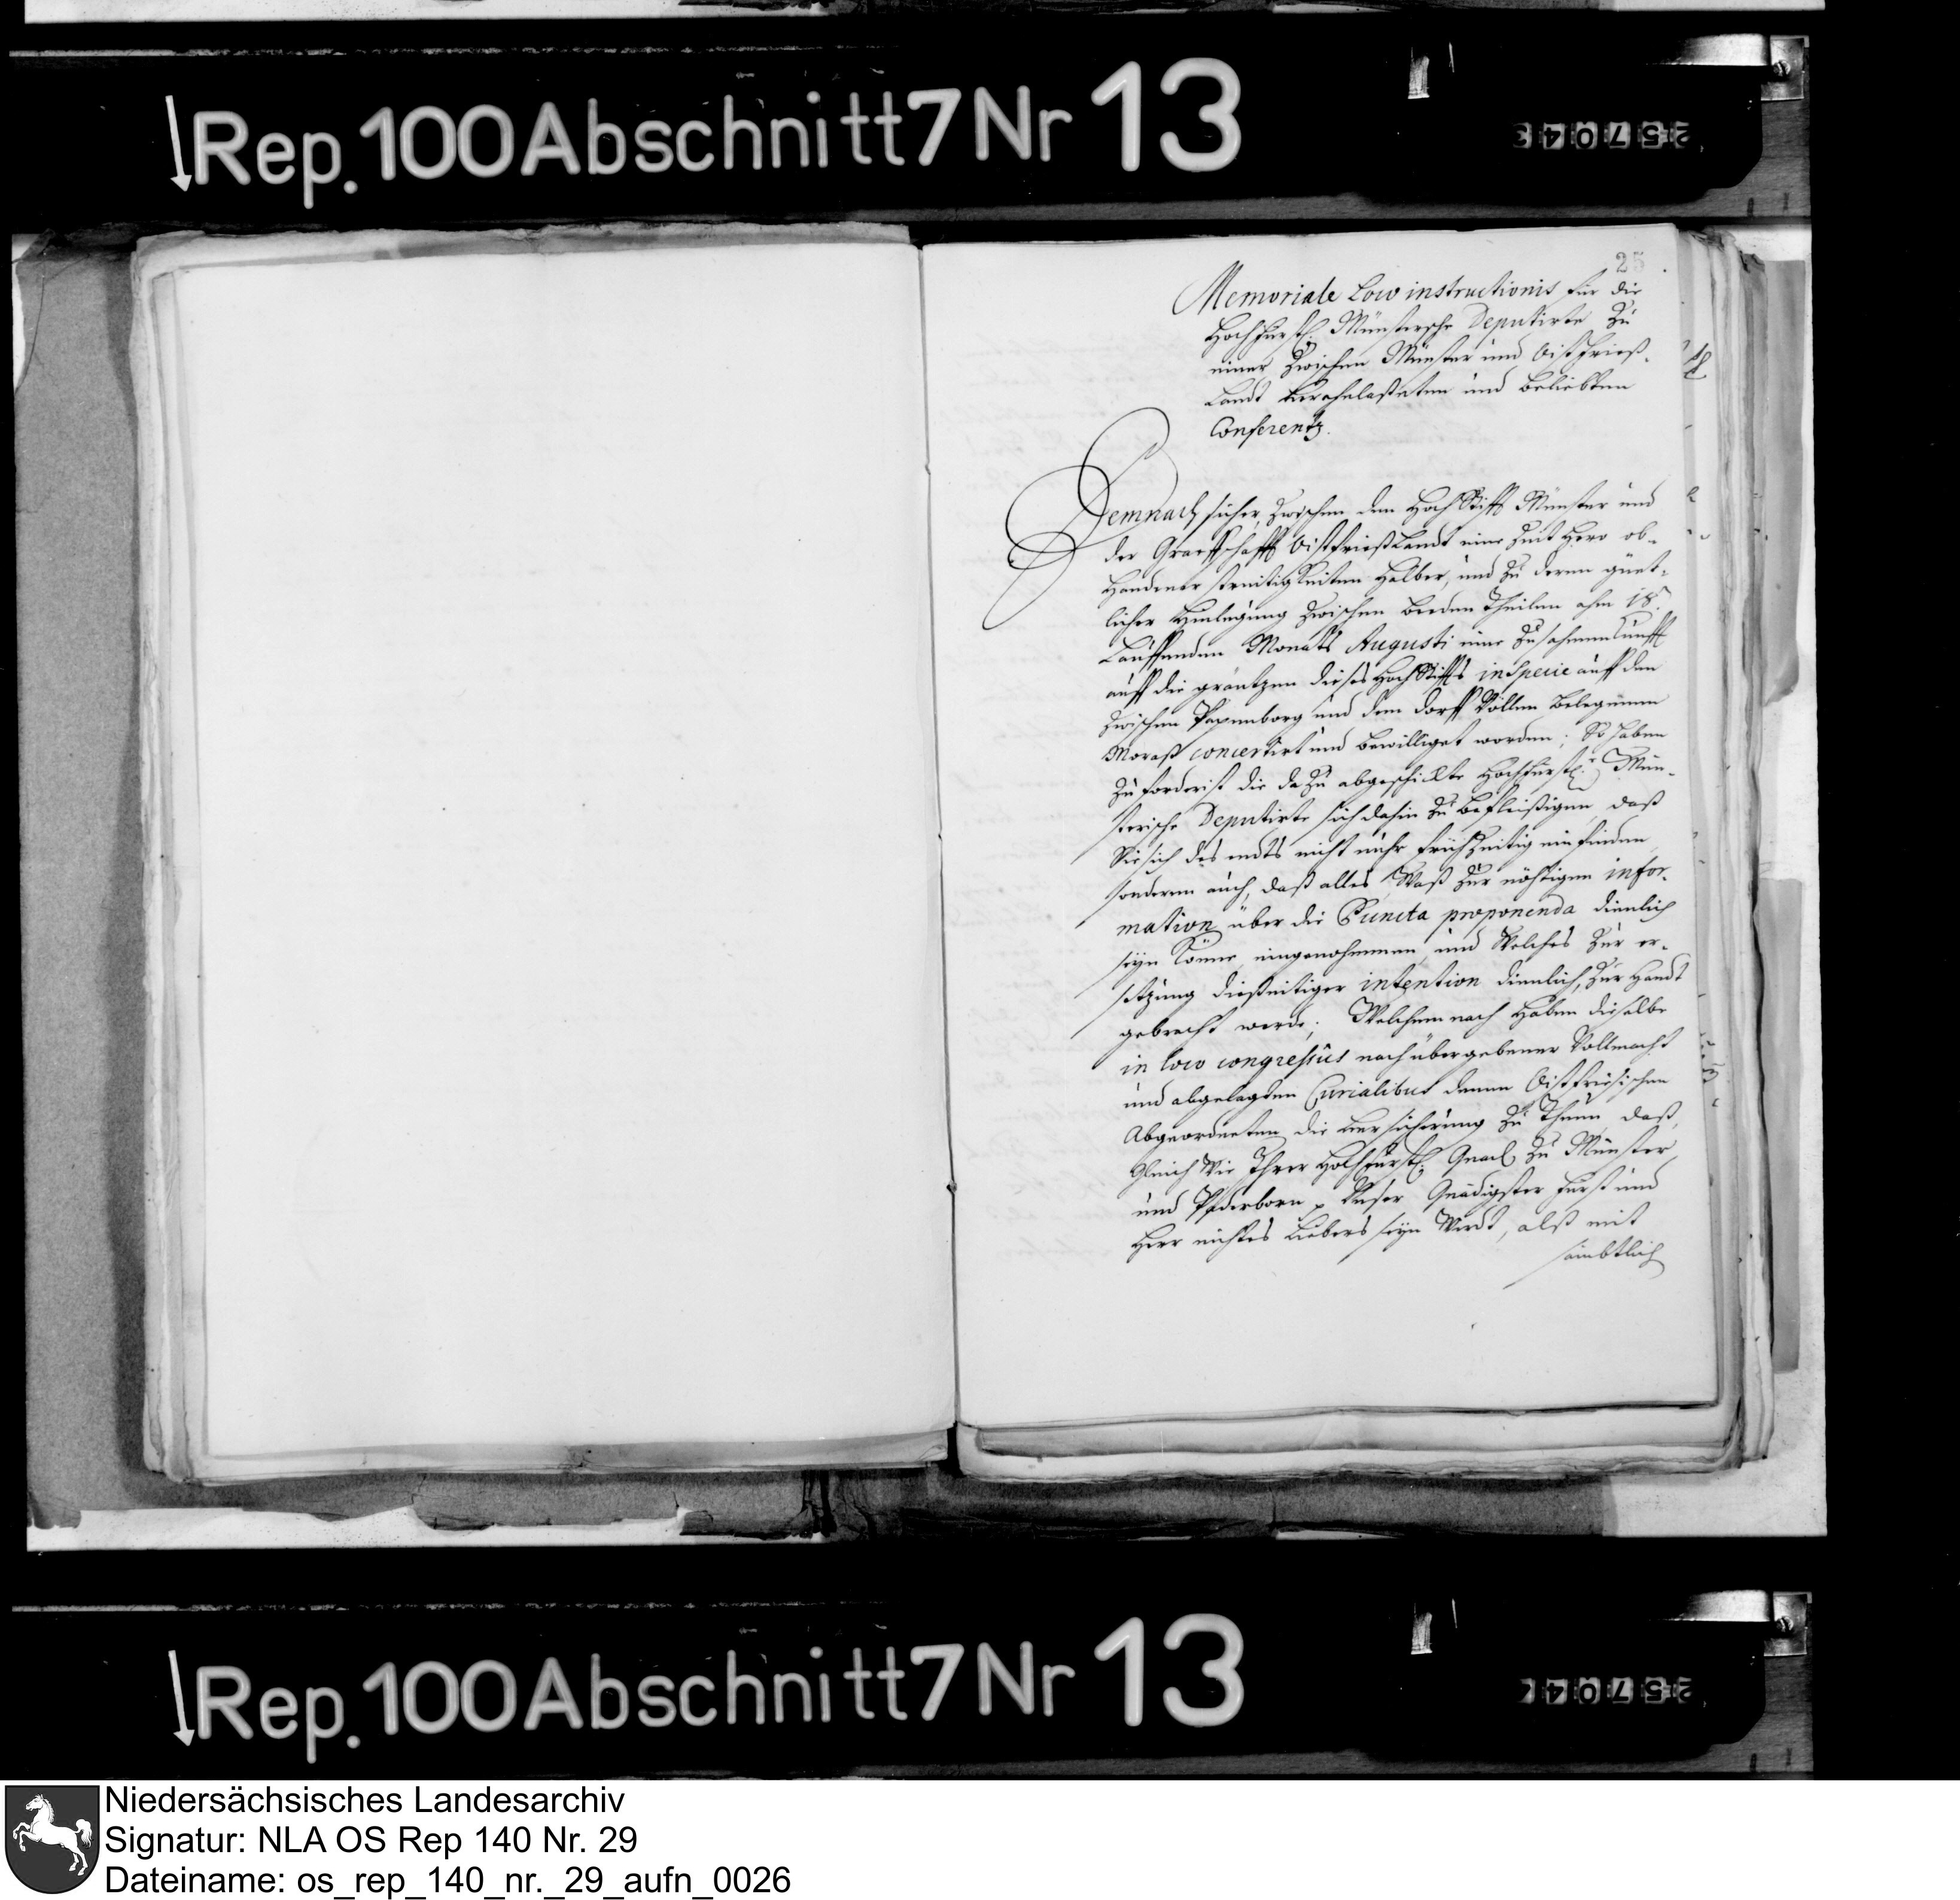 Rep. 100 Abschnitt 7 Nr 13
25
Memoriale loco instructionis für die
Hochfürstl. Münstersche Deputirte zu
einer zwischen Münster und Ostfrieß-
Landt veranlaßeten und beliebten
Conferentz.
Demnach sicher zwischen dem HochStifft Münster und
der Graffschafft OistfrießLandt eine Zeit hero ob-
handener streitigkeiten halber, und zu deren güet-
licher hinlegung zwischen beeden Theilen ahm 18.
Lauffenden Monats Augusti eine Zusahmenkunfft
auff die gräntzen dieses HochStiffts in Specie auff den
zwischen Papenborg und dem dorff Völlen belegenen
Moraß concertirt und bewilliget worden; So haben
zuforderist die dazu abgeschickte Hochfürstl. Mün-
sterische Deputirte sich dahin zu befleißigen, daß
Sie sich des endts nicht nuhr frühzeitig einfinden
sonderen auch, daß alles Waß zur nöhtigen infor-
mation über die Puncta proponenda dienlich
seyn könne, eingenohmmen, und Welches zur er-
setzung dießeitiger intention dienlich, zur Handt
gebracht werde; Welchemnach haben dieselbe
in loco congressûs nach übergebener Vollmacht
und abgelagten Curialibus denen Oistfriesischen
Abgeordneten die versicherung zu Thuen, daß,
Gleich Wie Ihrer Hochfürstl. Gnad. zu Münster
und Paderborn Unser Gnädigster Fürst und
Herr nichtes Liebers seyn Wirdt, alß mit
sämbtlich
Rep. 100 Abschnitt 7 Nr 13
Niedersächsisches Landesarchiv
Signatur: NLA OS Rep 140 Nr. 29
Dateiname: os_rep_140_nr._29_aufn_0026